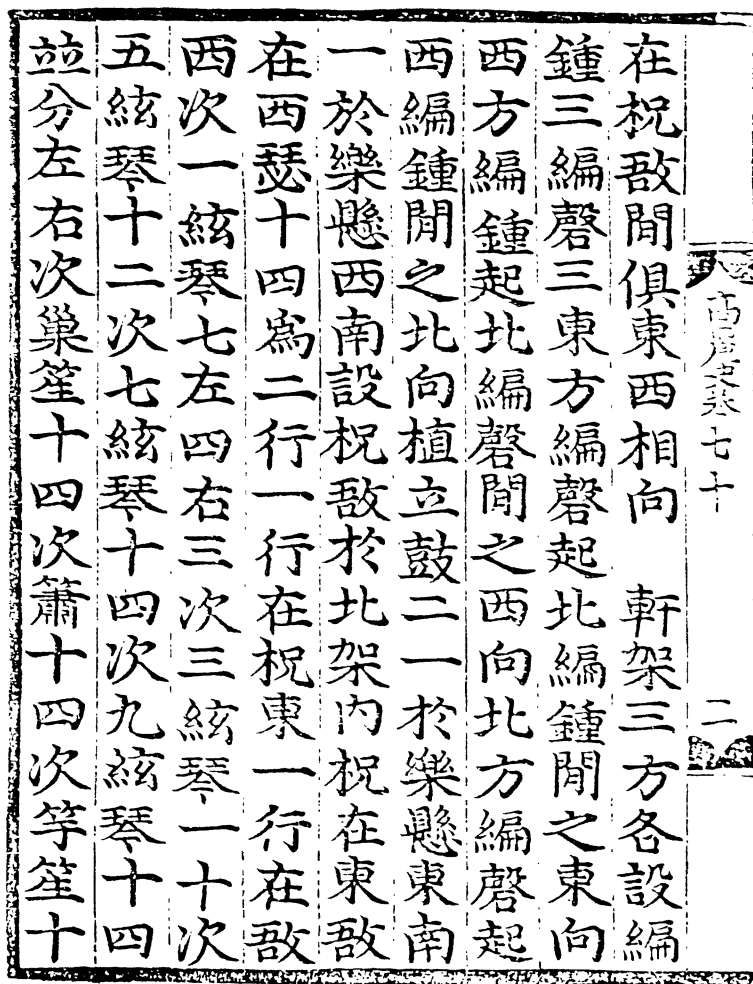 高麗史卷七十
二
在柷敔閒俱東西相向　軒架三方各設編
鍾三編磬三東方編磬起北編鍾閒之東向
西方編鍾起北編磬閒之西向北方編磬起
西編鍾閒之北向植立鼓二一於樂懸東南
一於樂懸西南設柷敔於北架內柷在東敔
在西瑟十四爲二行一行在柷東一行在敔
西次一絃琴七左四右三次三絃琴一十次
五絃琴十二次七絃琴十四次九絃琴十四
竝分左右次巢笙十四次簫十四次竽笙十